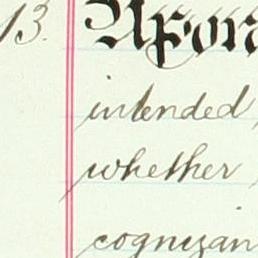 13. Upon
intended
whether
cognizan